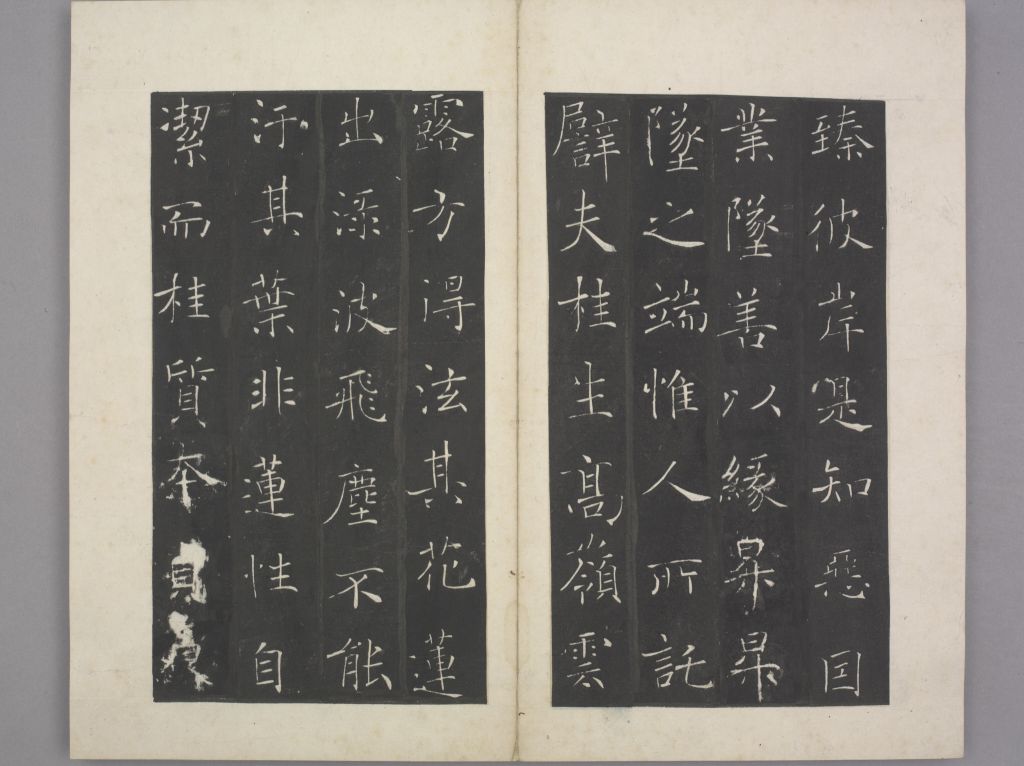 臻彼岸是知惡因
業墜善以緣昇昇
墜之端惟人所託
譬夫桂生髙嶺雲
露方得泫其花蓮
出淥波飛塵不能
汙其葉非蓮性自
潔而桂質本貞良